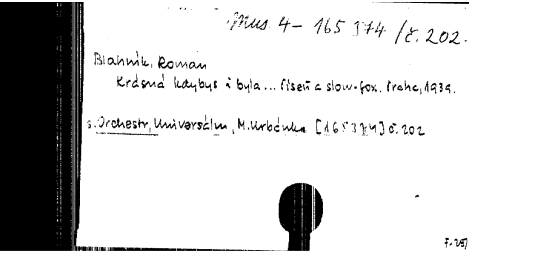 Mus 4 - 165374 / č. 202.
Blahník, Roman
Krásná kdybys i byla... Píseň a slow-fox. Praha, 1939.
s. Orchestr, Universální, M. Urbánka [165374] č. 202